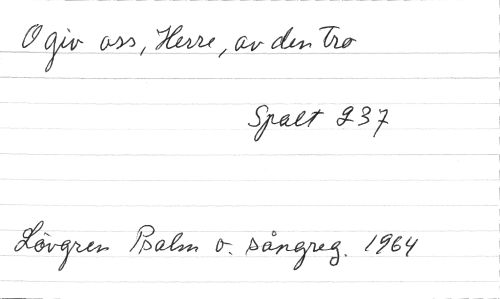 O giv oss, Herre, av den tro
Spalt 237
Lövgren Psalm o. sångreg. 1964